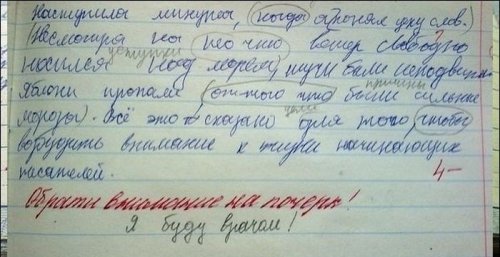 Наступила минута, (когда я понял цену слов.)
(Несмотря на то что) ветер свободно
уступки
носился над морем, тучи были неподвижны
причины
Яблони пропали (оттого что) были сильные
цели
морозы). Всё это сказано для того, (чтобы
возбудить внимание к жизни начинающих
писателей.
4-
Обрати внимание на почерк!
Я буду врачом!